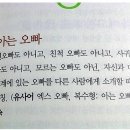 아는 오빠
빠도 아니고, 친척 오빠도 아니고, 사귀
도 아니고, 모르는 오빠도 아닌, 자신과
계에 있는 오빠를 다른 사람에게 소개할 때
칭. (유사어 엑스 오빠, 복수형: 아는 오빠